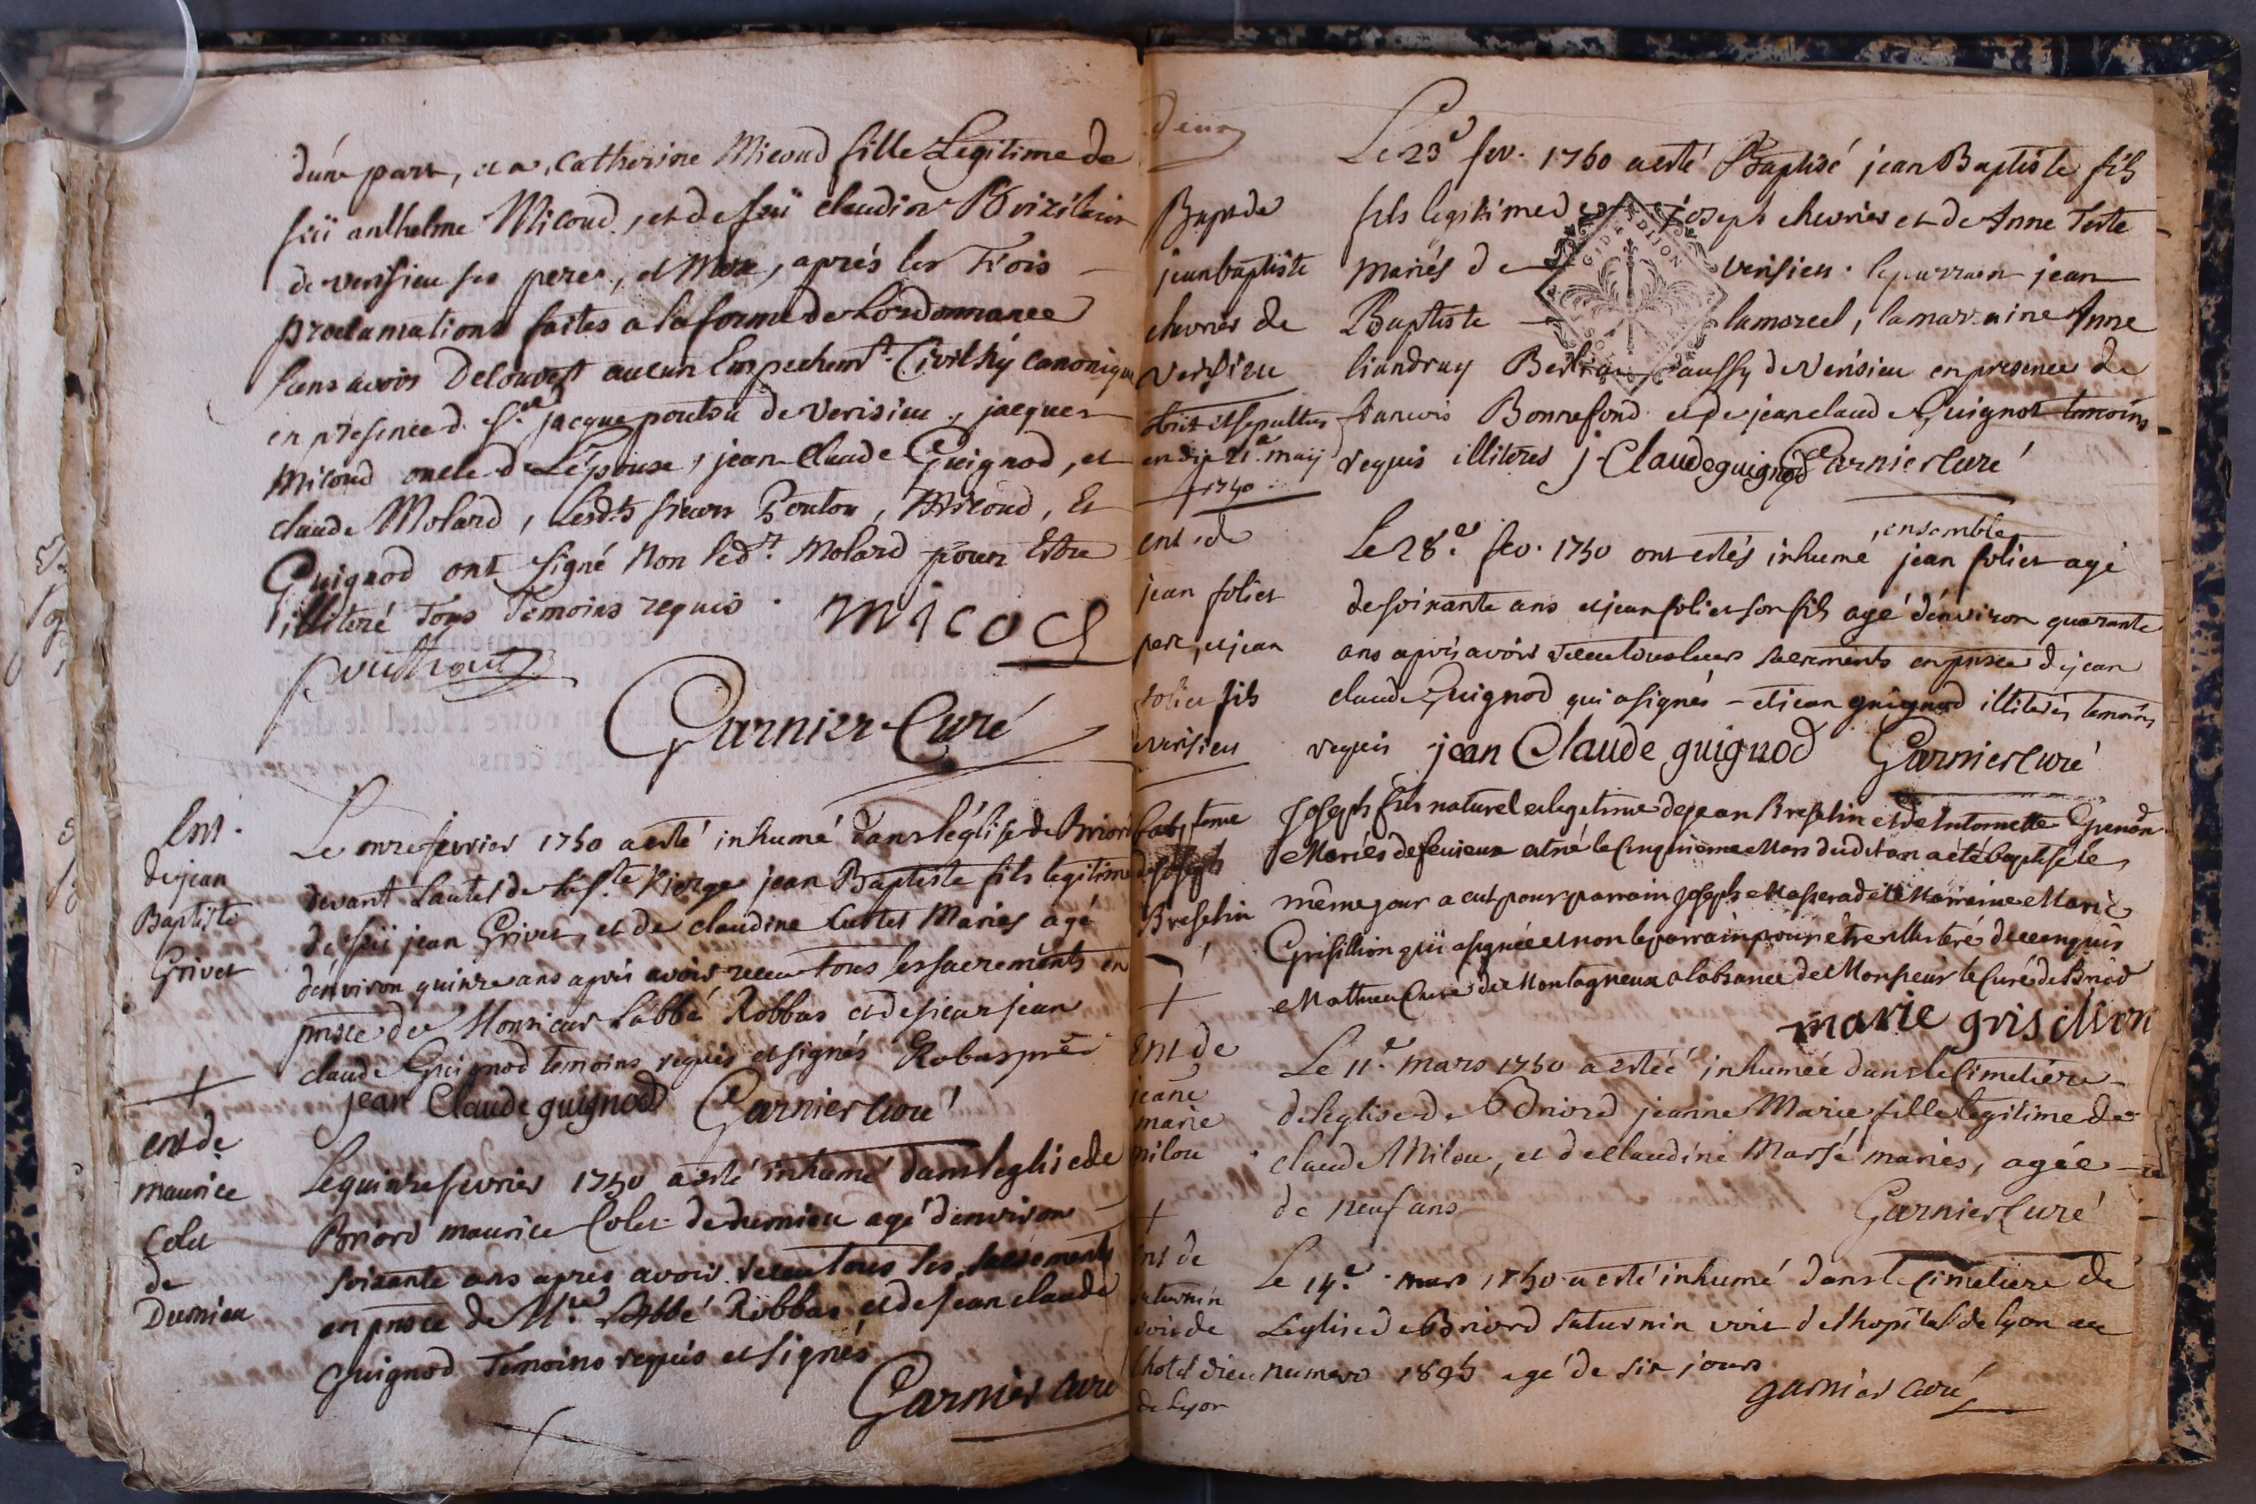 d'une part, et a Catherine Micoud fille Legitime de
feu anthelme Micoud, et de feu claudine
de verisieu ses pere, et Mere, aprés les Trois
proclamations faites a la forme de Lordonnance
sans avoir Decouvert aucun Empechemt. Civil ny canonique
en presence d. Sr. jacque pouton de verisieu, jacques
Micoud oncle de L'épouse, jean Claude Guignod, et
claude Molard, Lesdts sieurs Pouton, Micoud, Et
Guignod ont signé Non led.t Molard pour Estre
illiteré Tous Temoins requis.
micod
Garnier Curé
Ent.
de jean
Baptiste
Grivet
Le onze fevrier 1750 a esté inhumé dans l'église de Briord
devant Lautel de la Ste Vierge jean Baptiste fils legitime
de feu jean Grivet, et de claudine Cutlet Mariés agé
d'environ quinze ans aprés avoir receu tous les sacrements en
pnsce de Monsieur Labbé Robbas et de sieur jean
claude Guignod temoins requis et signés Robas pre
jean Claude guignod Garnier curé
ent de
maurice
Colet
de
Dumieu
Le quinze fevrier 1750 a esté inhumé dans leglise de
Briord maurice Colet de dumieu agé denviron
soixante ans aprés avoir receu tous ses sacrements
en pnsce de Mre. L'Abbé Robbas et de jean claude
Guignod Temoins requis et signés
Garnier curé
Bapt de
jean baptiste
chevrier de
Verisieu
Le 23e fev. 1750 a esté Baptisé jean Baptiste fils
fils legitime de joseph chevrier et de Anne Teste
mariés de verisieu. le parrain jean
Baptiste lamorcel, la marraine Anne
liandray aussy de Verisieu en presence de
francois Bonnefond et de jean claude Guignot temoins
requis illiteres j. Claude guignod Garnier Curé
GID DIJON
ent de
jean foliet
pere, et jean
foliet fils
verisieu
Le 28e. fev. 1750 ont estés inhumé ensemble jean foliet agé
de soixante ans et jean foliet son fils agé d'environ quarante
ans aprés avoir receu tous leurs sacrements en pnsce de jean
claude Guignod qui a signés - et jean guignod illiterés temoins
requis jean Claude guignod Garnier Curé
Joseph
Breselin
Joseph fils naturel et legitime de jean Breselin et de Antoinette Grenod
Mariés de fenieux et né le Cinquième Mars dudit an a été baptisé le
même jour a eut pour parrain Joseph et Marraine Marie
Grisillion qui a signée et non le parrain pour être illiteré de ce enquis
Mathieu Curé de Montagneux a l'absance de Monsieur le Curé de Briod
marie grisillion
Ent de
jeane
marie
milou
Le 11e. mars 1750 a estéé inhumée dans le Cimetiére
de leglise de Briord jeanne Marie fille legitime de
claude Milou, et de claudine Marsé mariés, agée
de neuf ans
Garnier Curé
Ent de
saturnin
voir de
lhotel dieu
de Lyon
Le 14e. mars 1750 a esté inhumé dans le cimetiere de
Leglise de Briord saturnin voir de lhopital de lyon au
numero 1895 agé de six jours
garnier curé